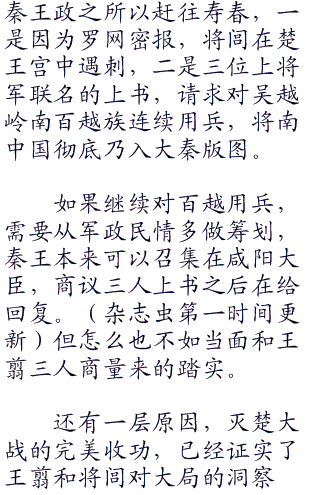 秦王政之所以赶往寿春，一
是因为罗网密报，将闾在楚
王宫中遇刺，二是三位上将
军联名的上书，请求对吴越
岭南百越族连续用兵，将南
中国彻底乃入大秦版图。
如果继续对百越用兵，
需要从军政民情多做筹划，
秦王本来可以召集在咸阳大
臣，商议三人上书之后在给
回复。（杂志虫第一时间更
新）但怎么也不如当面和王
翦三人商量来的踏实。
还有一层原因，灭楚大
战的完美收功，已经证实了
王翦和将闾对大局的洞察